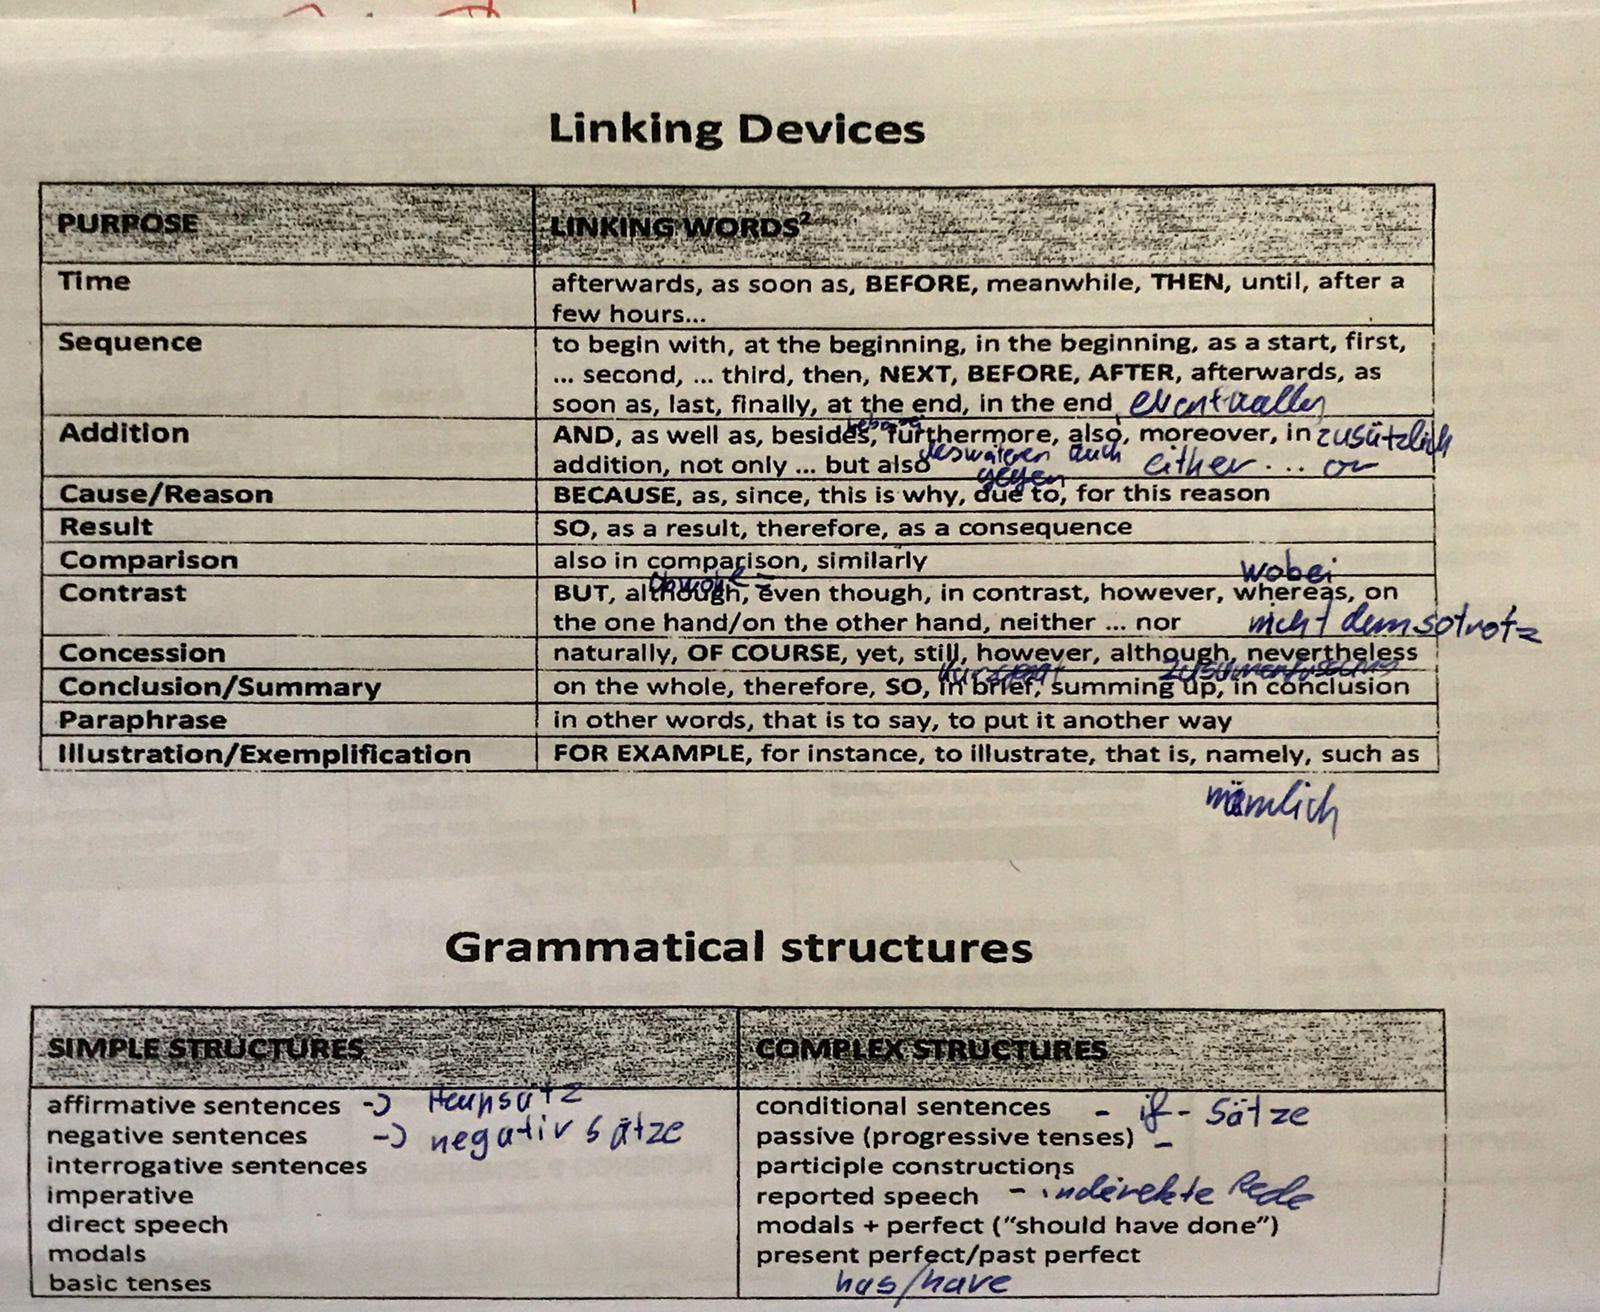 Linking Devices
PURPOSE LINKING WORDS²
Time afterwards, as soon as, BEFORE, meanwhile, THEN, until, after a
few hours...
Sequence to begin with, at the beginning, in the beginning, as a start, first,
... second, ... third, then, NEXT, BEFORE, AFTER, afterwards, as
soon as, last, finally, at the end, in the end eventually
Addition AND, as well as, besides, furthermore, also, moreover, in zusätzlich
deswateren auch
addition, not only ... but also either ... or
gegen
Cause/Reason BECAUSE, as, since, this is why, due to, for this reason
Result SO, as a result, therefore, as a consequence
Comparison also in comparison, similarly
obwohl wobei
Contrast BUT, although, even though, in contrast, however, whereas, on
the one hand/on the other hand, neither ... nor nicht demsotrotz
Concession naturally, OF COURSE, yet, still, however, although, nevertheless
Conclusion/Summary on the whole, therefore, SO, in brief, summing up, in conclusion
Paraphrase in other words, that is to say, to put it another way
Illustration/Exemplification FOR EXAMPLE, for instance, to illustrate, that is, namely, such as
nämlich
Grammatical structures
SIMPLE STRUCTURES COMPLEX STRUCTURES
affirmative sentences -> Haupsatz conditional sentences - if - Sätze
negative sentences -> negativ sätze passive (progressive tenses) -
interrogative sentences participle constructions
imperative reported speech - indirekte Rede
direct speech modals + perfect ("should have done")
modals present perfect/past perfect
basic tenses has/have